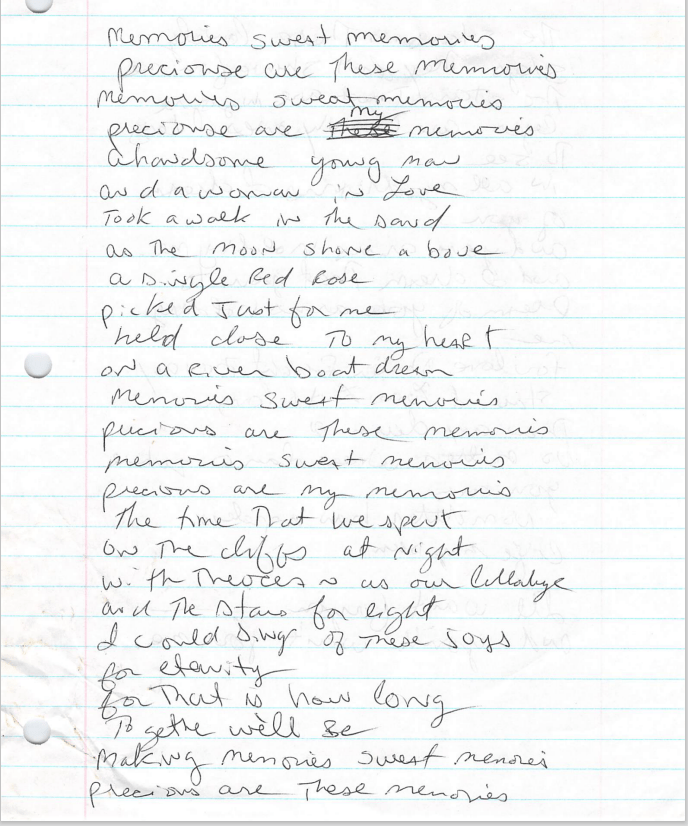 Memories sweet memories
preciouse are these memories
memories sweat memories
my
preciouse are these memories
a handsome young man
and a woman in Love
Took a walk in the sand
as the moon shone a bove
a single Red Rose
picked Just for me
held close To my heart
on a River boat dream
Memories sweet memories
precious are these memories
memories sweet memories
precious are my memories
the time That we spent
on the cliffs at night
with The oces n as our lullabye
and The stars for light
I could sing of these Joys
for eternity
for That is how long
To gethe we'll Be
Making memories sweet memories
precious are These memories